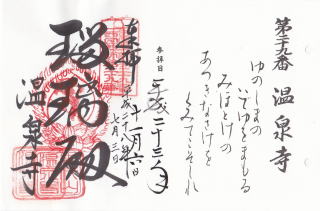 第二十九番 温泉寺
ゆのしまの
いでゆをまもる
みほとけの
あつきなさけを
くみてこそしれ
参拝日
平成二十三年
十一月六日
奉拝
七月三日
瑠璃殿
温泉寺